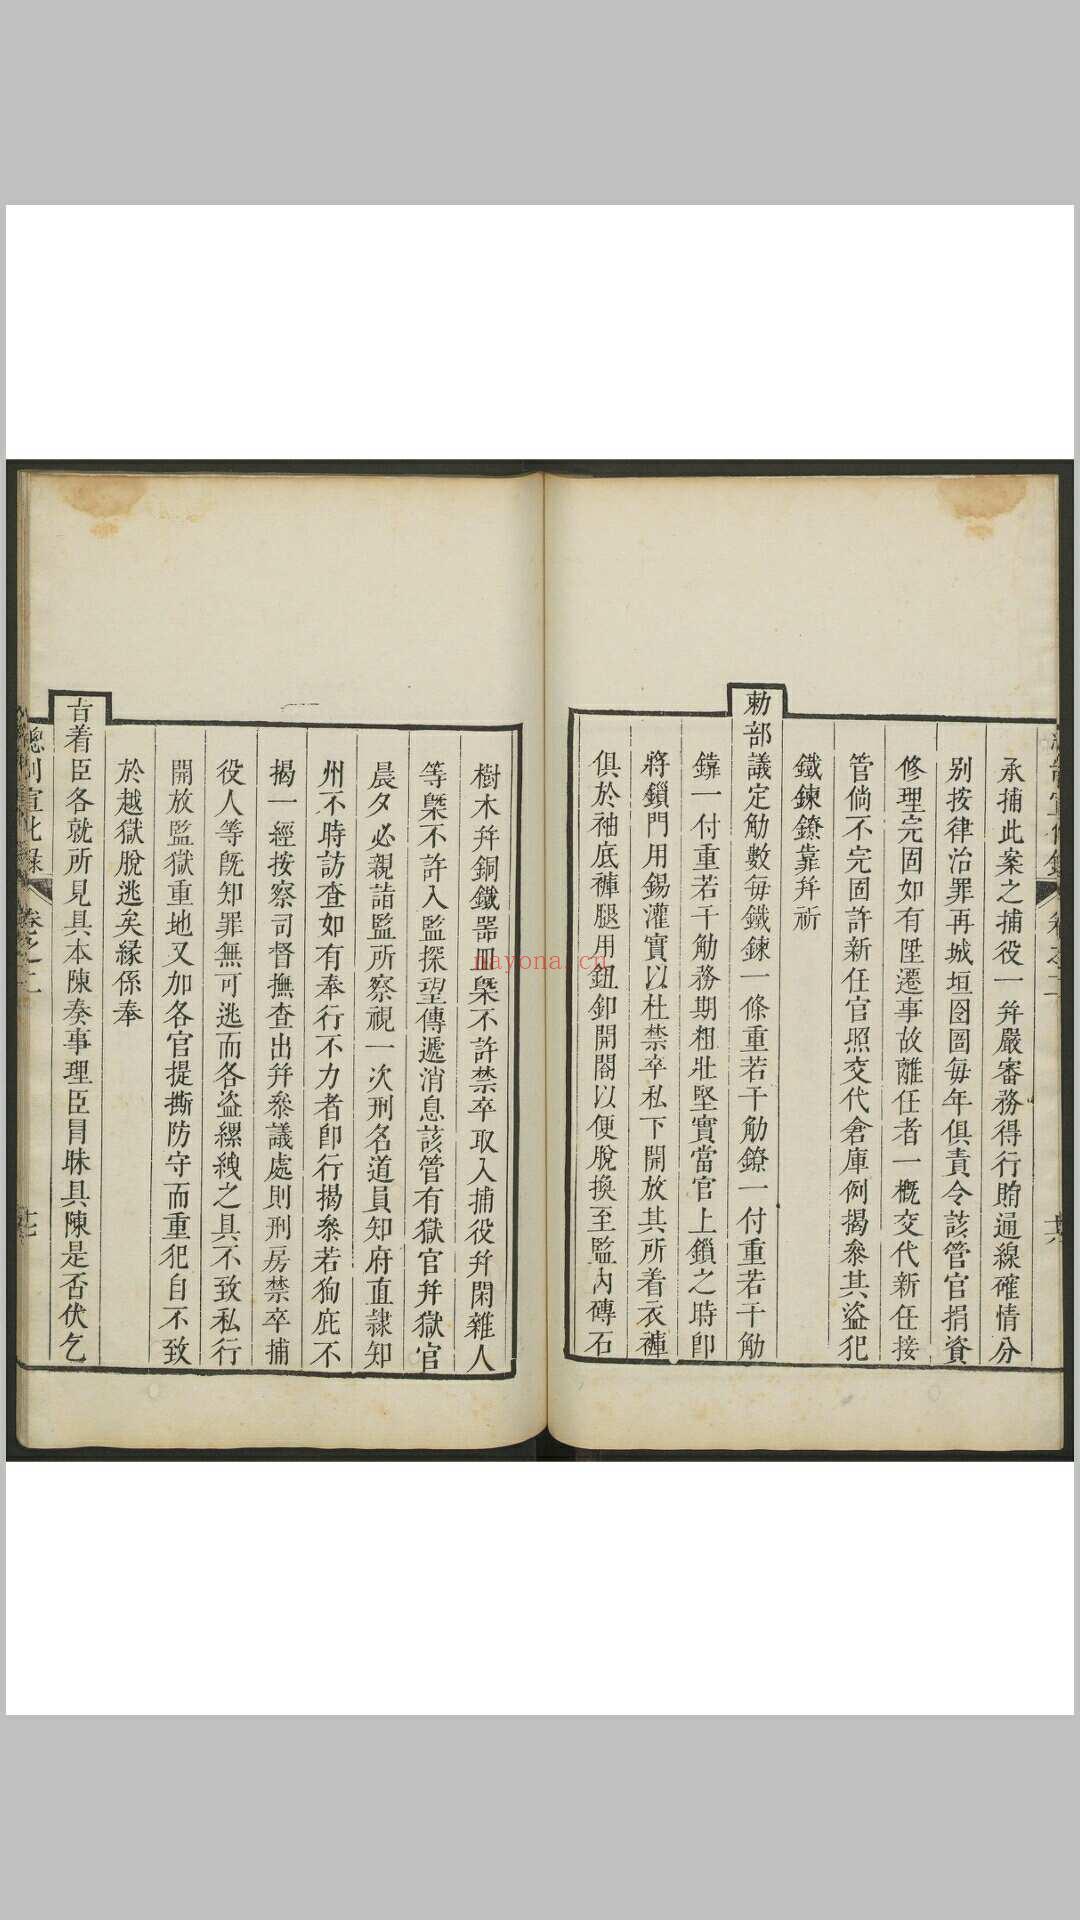 承捕此案之捕役一并嚴審務得行賄通線確情分
别按律治罪再城垣囹圄每年俱責令該管官捐資
修理完固如有陞遷事故離任者一概交代新任接
管倘不完固許新任官照交代倉庫例揭叅其盜犯
鐵鍊鐐靠并祈
勅部議定觔數每鐵鍊一條重若干觔鐐一付重若干觔
靠一付重若干觔務期粗壯堅實當官上鎖之時卽
將鎖門用錫灌實以杜禁卒私下開放其所着衣褲
俱於袖底褲腿用鈕釦開閤以便脫換至監内磚石
樹木并銅鐵器皿槩不許禁卒取入捕役并閑雜人
等槩不許入監探望傳遞消息該管有獄官并獄官
晨夕必親詣監所察視一次刑名道員知府直隷知
州不時訪查如有奉行不力者卽行揭叅若狥庇不
揭一經按察司督撫查出并叅議處則刑房禁卒捕
役人等旣知罪無可逃而各盜縲絏之具不致私行
開放監獄重地又加各官提撕防守而重犯自不致
於越獄脫逃矣緣係奉
旨着臣各就所見具本陳奏事理臣冒昧具陳是否伏乞
卷之二
nayona.cn